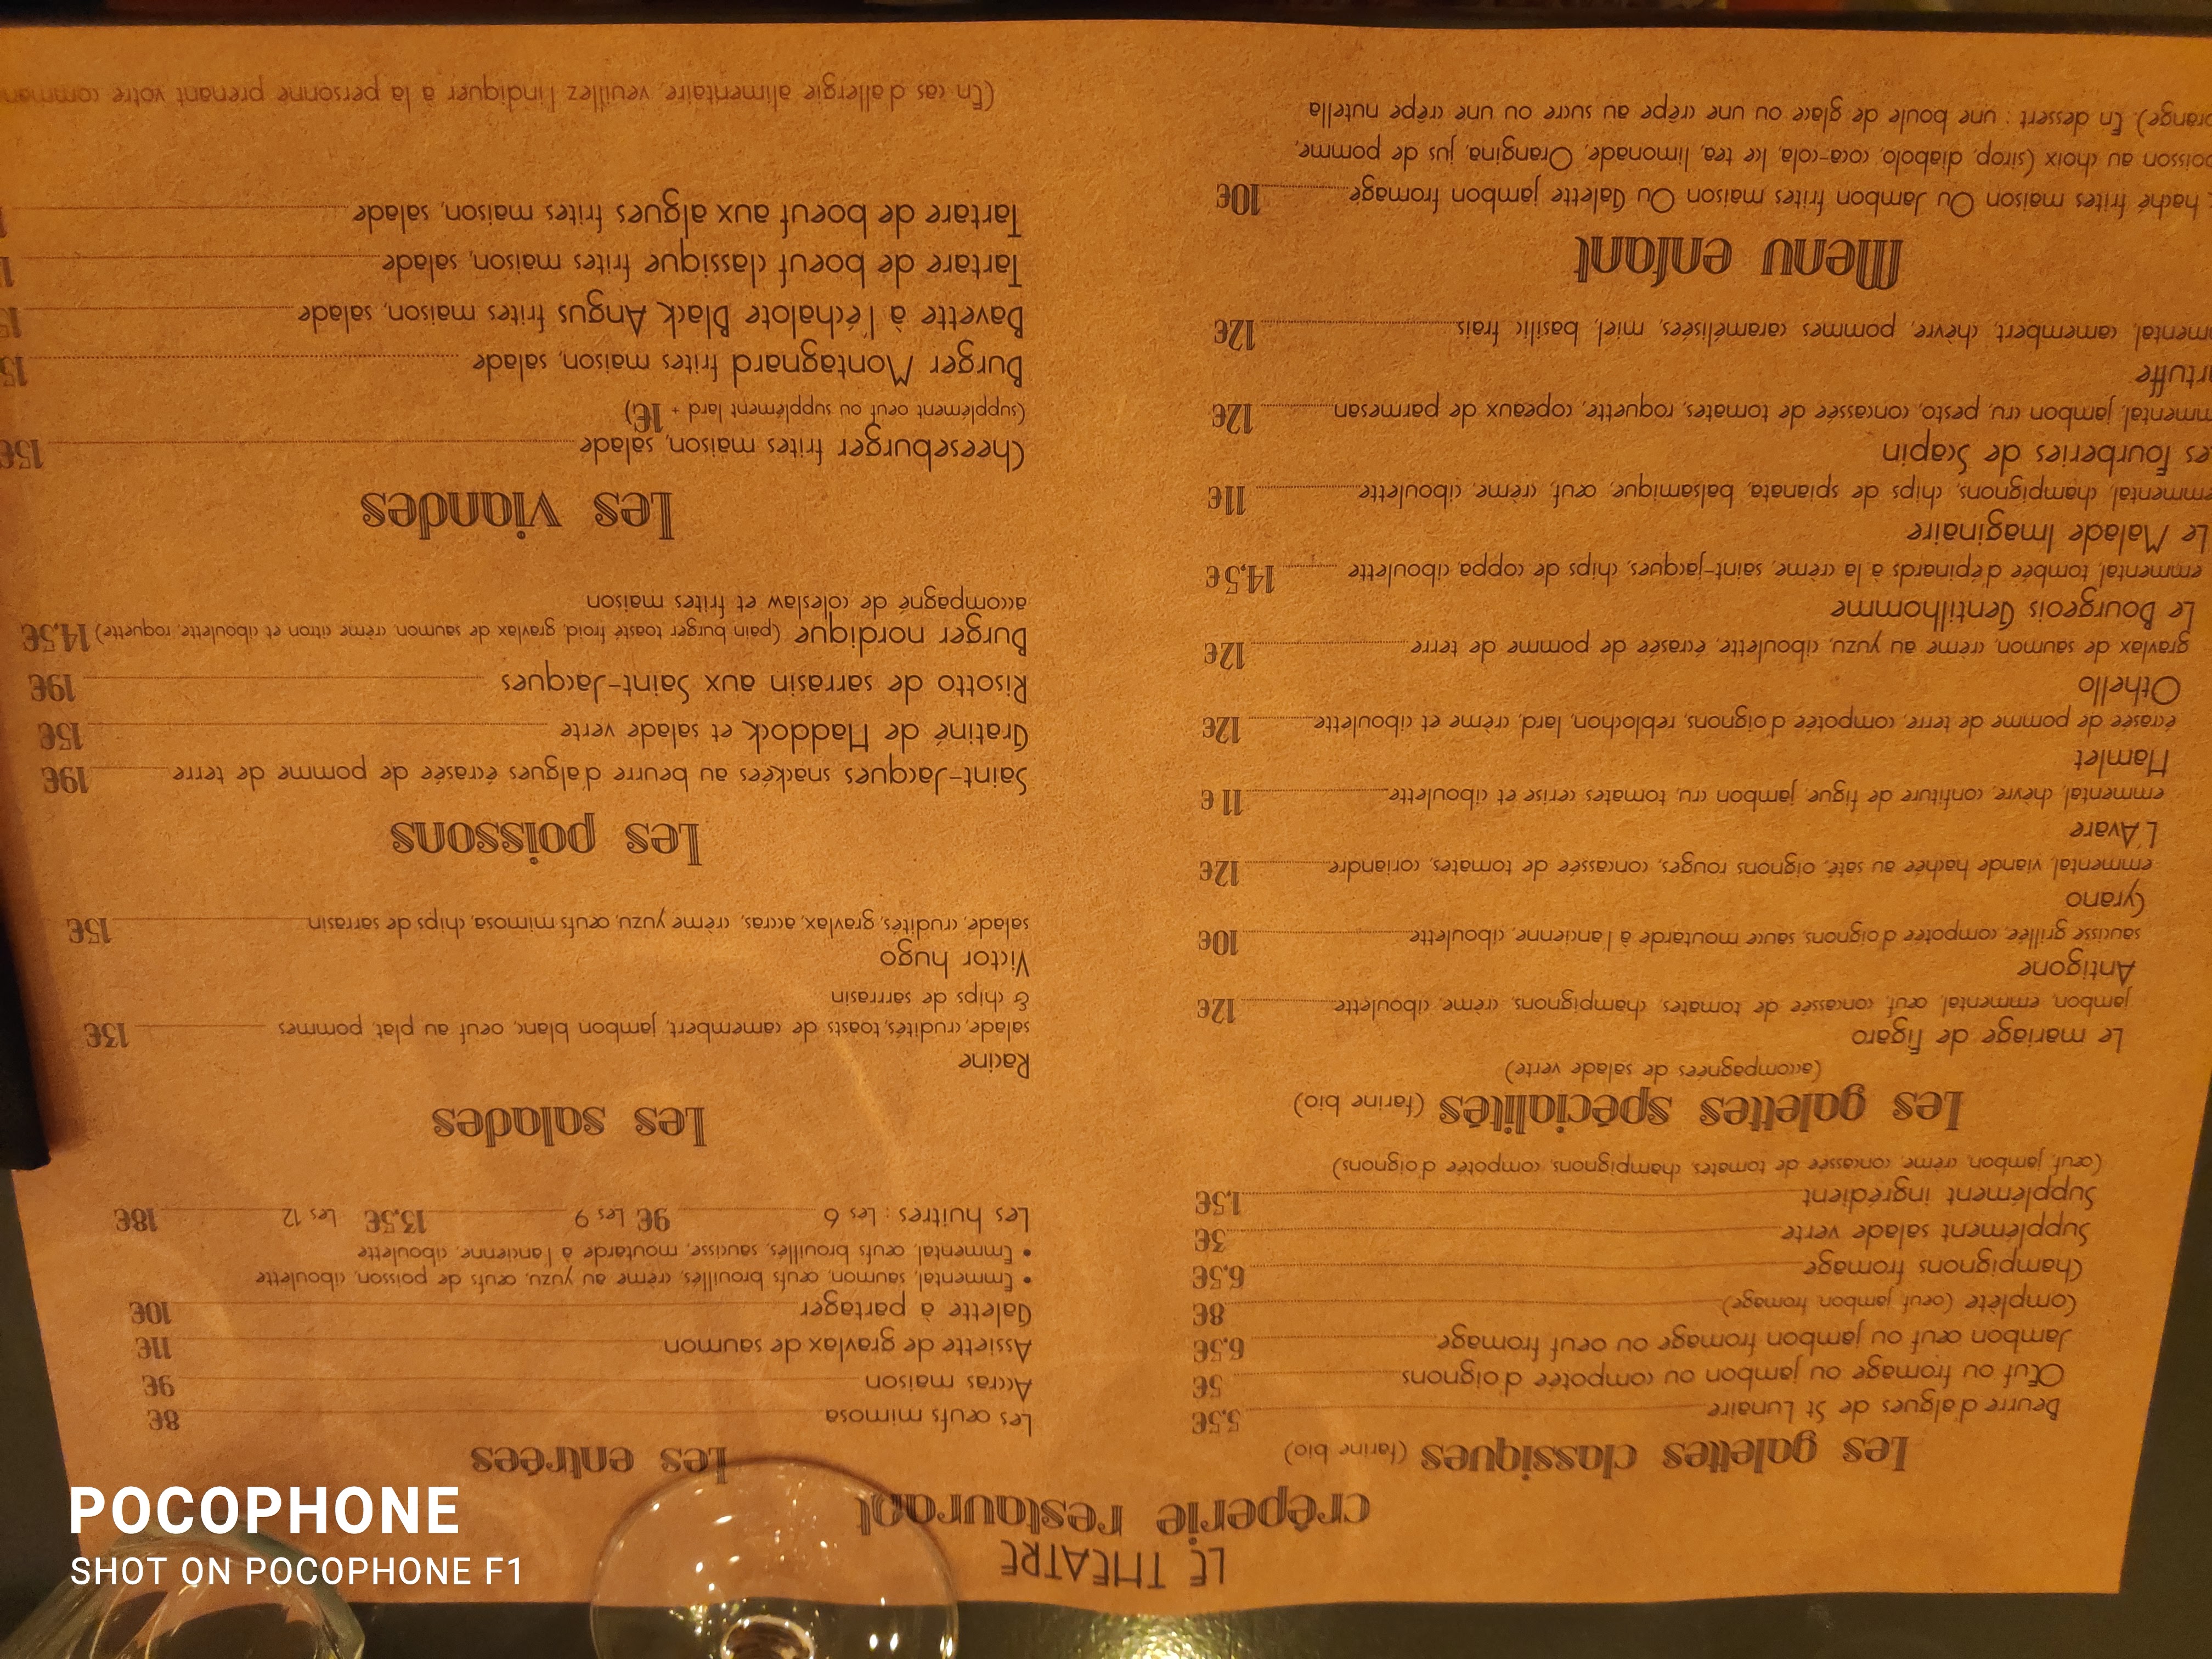 LE THEATRE
crêperie restaurant
Les galettes classiques (farine bio)
Beurre d'algues de St Lunaire 5,5€
Œuf ou fromage ou jambon ou compotée d'oignons 5€
Jambon œuf ou jambon fromage ou oeuf fromage 6,5€
Complète (oeuf jambon fromage) 8€
Champignons fromage 6,5€
Supplément salade verte 3€
Supplément ingrédient 1,5€
(œuf, jambon, crème, concassée de tomates, champignons, compotée d'oignons)
Les galettes spécialités (farine bio)
(accompagnées de salade verte)
Le mariage de Figaro
jambon, emmental, œuf, concassée de tomates, champignons, crème, ciboulette 12€
Antigone
saucisse grillée, compotée d'oignons, sauce moutarde à l'ancienne, ciboulette 10€
Cyrano
emmental, viande hachée au saté, oignons rouges, concassée de tomates, coriandre 12€
L'Avare
emmental, chèvre, confiture de figue, jambon cru, tomates cerise et ciboulette 11 €
Hamlet
écrasée de pomme de terre, compotée d'oignons, reblochon, lard, crème et ciboulette 12€
Othello
gravlax de saumon, crème au yuzu, ciboulette, écrasée de pomme de terre 12€
Le Bourgeois Gentilhomme
emmental, tombée d'épinards à la crème, saint-jacques, chips de coppa, ciboulette 14,5€
Le Malade Imaginaire
emmental, champignons, chips de spianata, balsamique, œuf, crème, ciboulette 11€
Les Fourberies de Scapin
mmental, jambon cru, pesto, concassée de tomates, roquette, copeaux de parmesan 12€
rtuffe
mental, camembert, chèvre, pommes caramélisées, miel, basilic frais 12€
Menu enfant
haché frites maison Ou Jambon frites maison Ou Galette jambon fromage 10€
oisson au choix (sirop, diabolo, coca-cola, Ice tea, limonade, Orangina, jus de pomme,
orange). En dessert : une boule de glace ou une crêpe au sucre ou une crêpe nutella
Les entrées
Les œufs mimosa 8€
Accras maison 9€
Assiette de gravlax de saumon 11€
Galette à partager 10€
• Emmental, saumon, œufs brouillés, crème au yuzu, œufs de poisson, ciboulette
• Emmental, œufs brouillés, saucisse, moutarde à l'ancienne, ciboulette
Les huîtres : Les 6 9€ Les 9 13,5€ Les 12 18€
Les salades
Racine
salade, crudités, toasts de camembert, jambon blanc, oeuf au plat, pommes 13€
& chips de sarrrasin
Victor hugo
salade, crudités, gravlax, accras, crème yuzu, œufs mimosa, chips de sarrasin 15€
Les poissons
Saint-Jacques snackées au beurre d'algues écrasée de pomme de terre 19€
Gratiné de Haddock et salade verte 15€
Risotto de sarrasin aux Saint-Jacques 19€
Burger nordique (pain burger toasté froid, gravlax de saumon, crème citron et ciboulette, roquette) 14,5€
accompagné de coleslaw et frites maison
Les viandes
Cheeseburger frites maison, salade 15€
(supplément oeuf ou supplément lard + 1€)
Burger Montagnard frites maison, salade 15
Bavette à l'échalote Black Angus frites maison, salade 15
Tartare de boeuf classique frites maison, salade 1
Tartare de boeuf aux algues frites maison, salade 1
(En cas d'allergie alimentaire, veuillez l'indiquer à la personne prenant votre comman
POCOPHONE
SHOT ON POCOPHONE F1